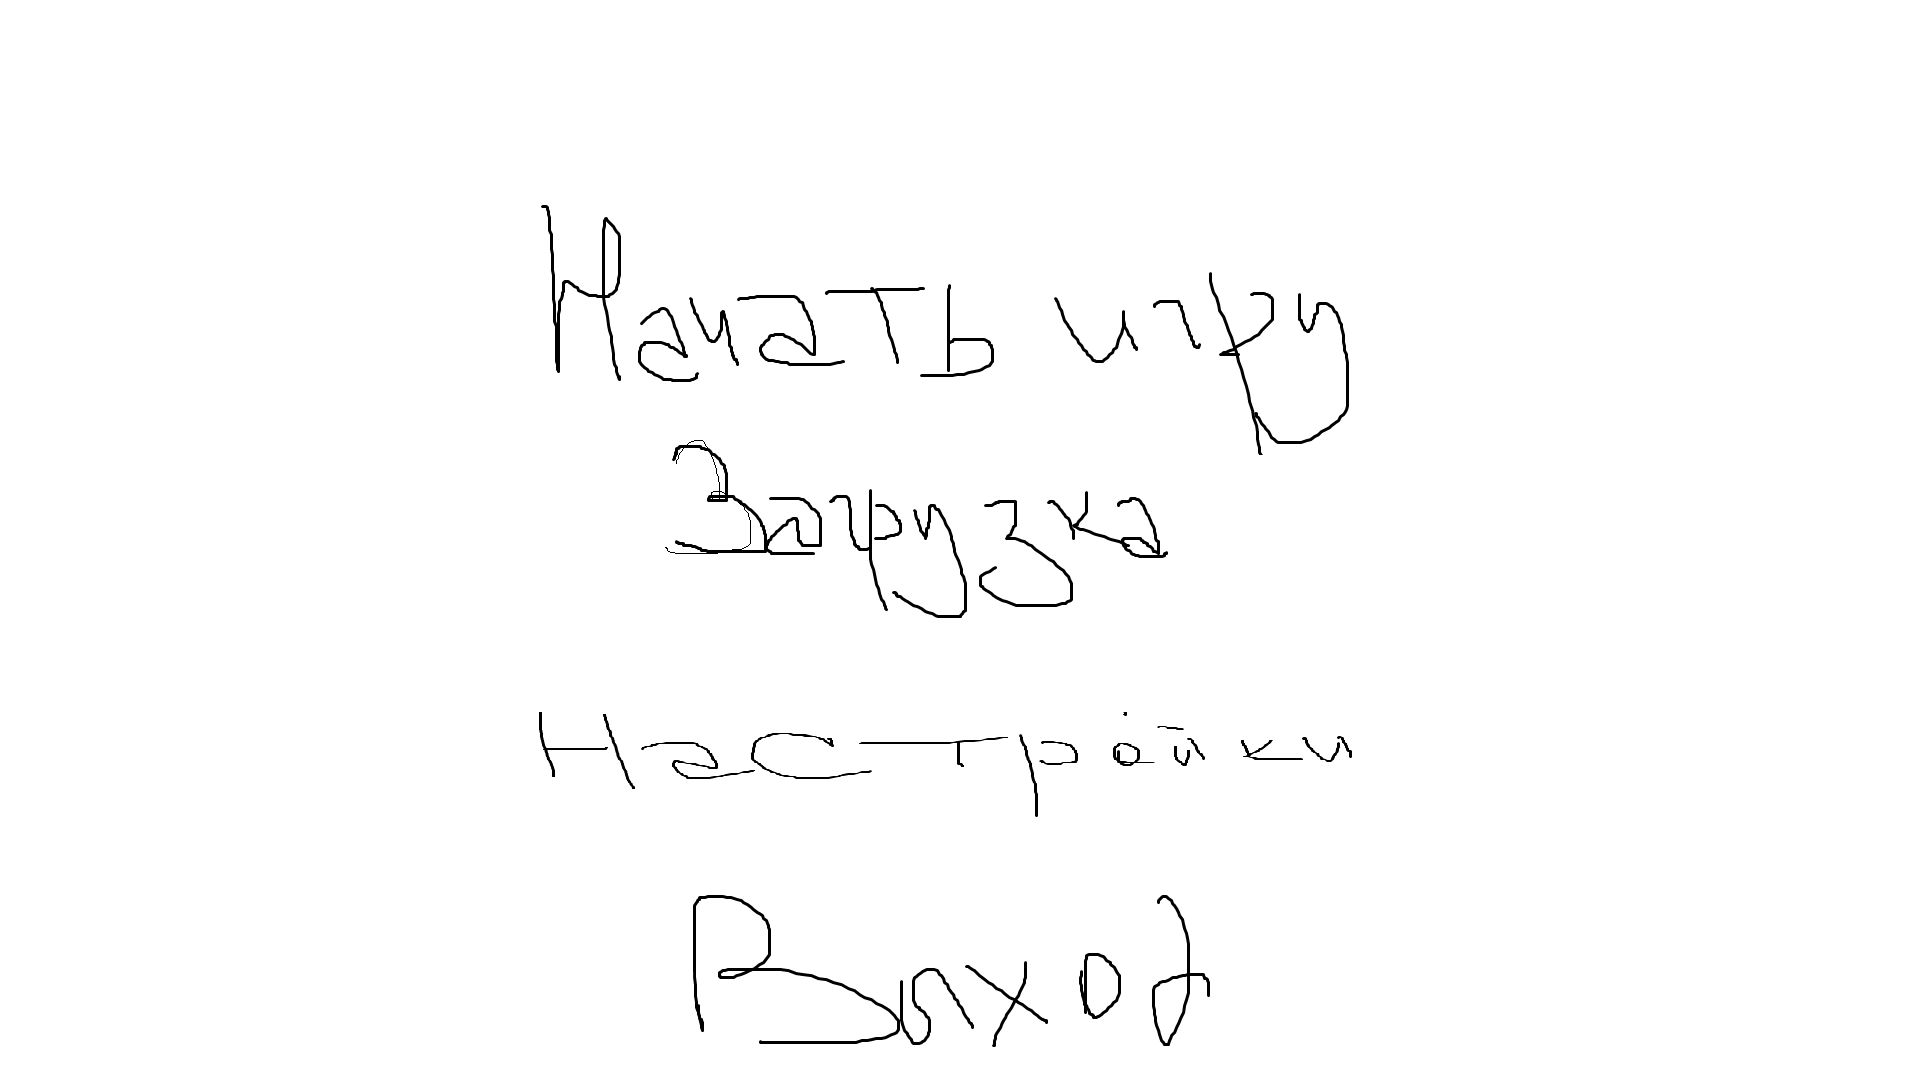 Начать игру
Загрузка
Настройки
Выход